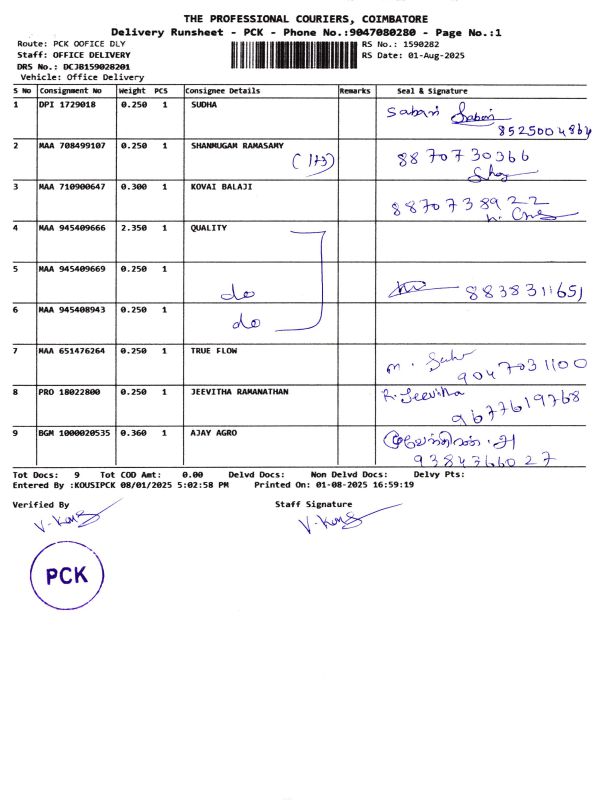 THE PROFESSIONAL COURIERS, COIMBATORE
Delivery Runsheet - PCK - Phone No.:9047080280 - Page No.:1
Route: PCK OOFICE DLY RS No.: 1590282
Staff: OFFICE DELIVERY RS Date: 01-Aug-2025
DRS No.: DCJB159028201
Vehicle: Office Delivery
S No Consignment No Weight PCS Consignee Details Remarks Seal & Signature
1 DPI 1729018 0.250 1 SUDHA Sabari Sabari
8525004864
2 MAA 708499107 0.250 1 SHANMUGAM RAMASAMY 8870730366
(1+3)
3 MAA 710900647 0.300 1 KOVAI BALAJI 8870738922
4 MAA 945409666 2.350 1 QUALITY
5 MAA 945409669 0.250 1 do 8838311651
6 MAA 945408943 0.250 1 do
7 MAA 651476264 0.250 1 TRUE FLOW
9047031100
8 PRO 18022800 0.250 1 JEEVITHA RAMANATHAN R. Jeevitha
9677619768
9 BGM 1000020535 0.360 1 AJAY AGRO
9384766027
Tot Docs: 9 Tot COD Amt: 0.00 Delvd Docs: Non Delvd Docs: Delvy Pts:
Entered By :KOUSIPCK 08/01/2025 5:02:58 PM Printed On: 01-08-2025 16:59:19
Verified By Staff Signature
PCK